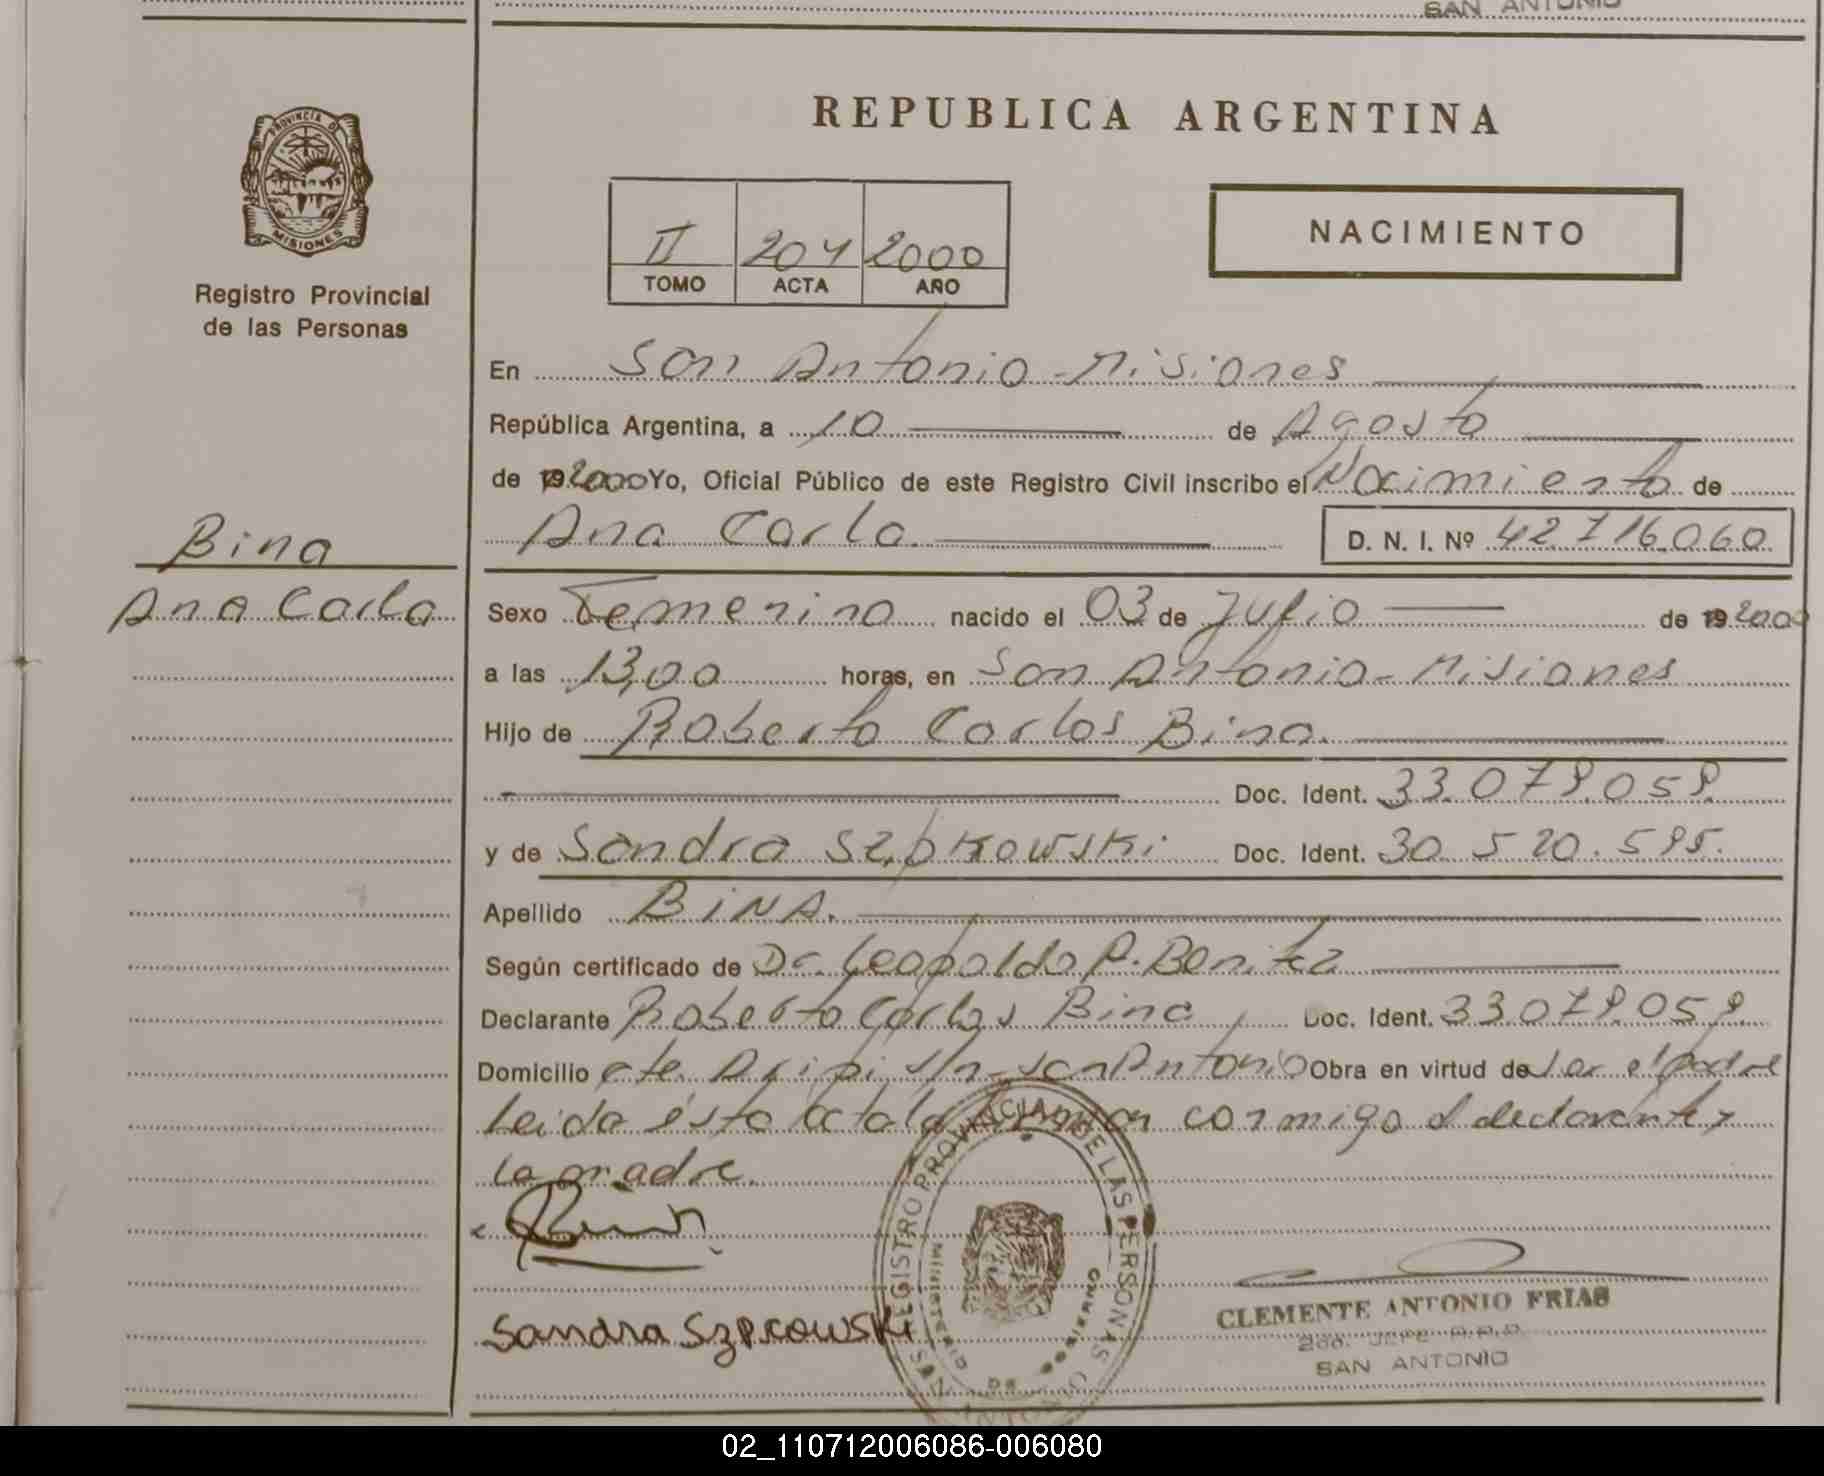 SAN ANTONIO
PROVINCIA DE
MISIONES
Registro Provincial
de las Personas
REPUBLICA ARGENTINA
II 204 2000
TOMO ACTA AÑO
NACIMIENTO
En San Antonio - Misiones
República Argentina, a 10 de Agosto
de 192000 Yo, Oficial Público de este Registro Civil inscribo el Nacimiento de
Ana Carla D. N. I. Nº 42.716.060
Bina
Ana Carla
Sexo Femenino nacido el 03 de Julio de 192000
a las 13,00 horas, en San Antonio - Misiones
Hijo de Roberto Carlos Bina.
Doc. Ident. 33.079.059.
y de Sandra Szpkowski Doc. Ident. 30.520.595.
Apellido BINA.
Según certificado de Dr. Leopoldo R. Benitez
Declarante Roberto Carlos Bina Doc. Ident. 33.079.059.
Domicilio Aripi S/n - San Antonio Obra en virtud de ser el padre
Leida ésta acta la firman conmigo el declarante y
la madre.
Sandra Szpcowski
REGISTRO PROVINCIAL DE LAS PERSONAS
MINISTERIO DE GOBIERNO
CLEMENTE ANTONIO FRIAS
2do. JEFE R.P.P.
SAN ANTONIO
02_110712006086-006080